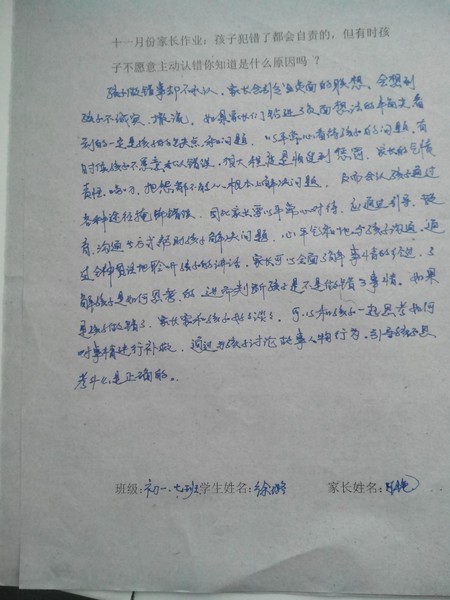 十一月份家长作业：孩子犯错了都会自责的，但有时孩
子不愿意主动认错你知道是什么原因吗 ？
孩子做错事却不承认，家长会引起负面的联想，会想到
孩子不诚实、撒谎，如果家长们钻进了负面想法的牛角尖看
到的一定是孩子的缺点和问题，以平常心看待孩子的问题，有
时候孩子不愿意承认错误，很大程度是怕受到惩罚，家长的乞
责怪、唠叨、把想解不能从根本上解决问题，反而会让孩子通过
各种途径掩饰错误，因此家长要以平常心对待，应通过引导、教
育、沟通的方式帮助孩子解决问题，心平气和地与孩子沟通，通
过全神贯注地聆听孩子的讲话，家长可以全面了解事情的经过，了
解孩子是如何思考的，进而判断孩子是不是做错了事情。如果
是孩子做错了，家长要和孩子好好谈谈，可以和孩子一起思考如何
对事情进行补救，通过与孩子讨论故事人物行为，引导孩子思
考什么是正确的。
班级：初一.七班学生姓名：徐 家长姓名：